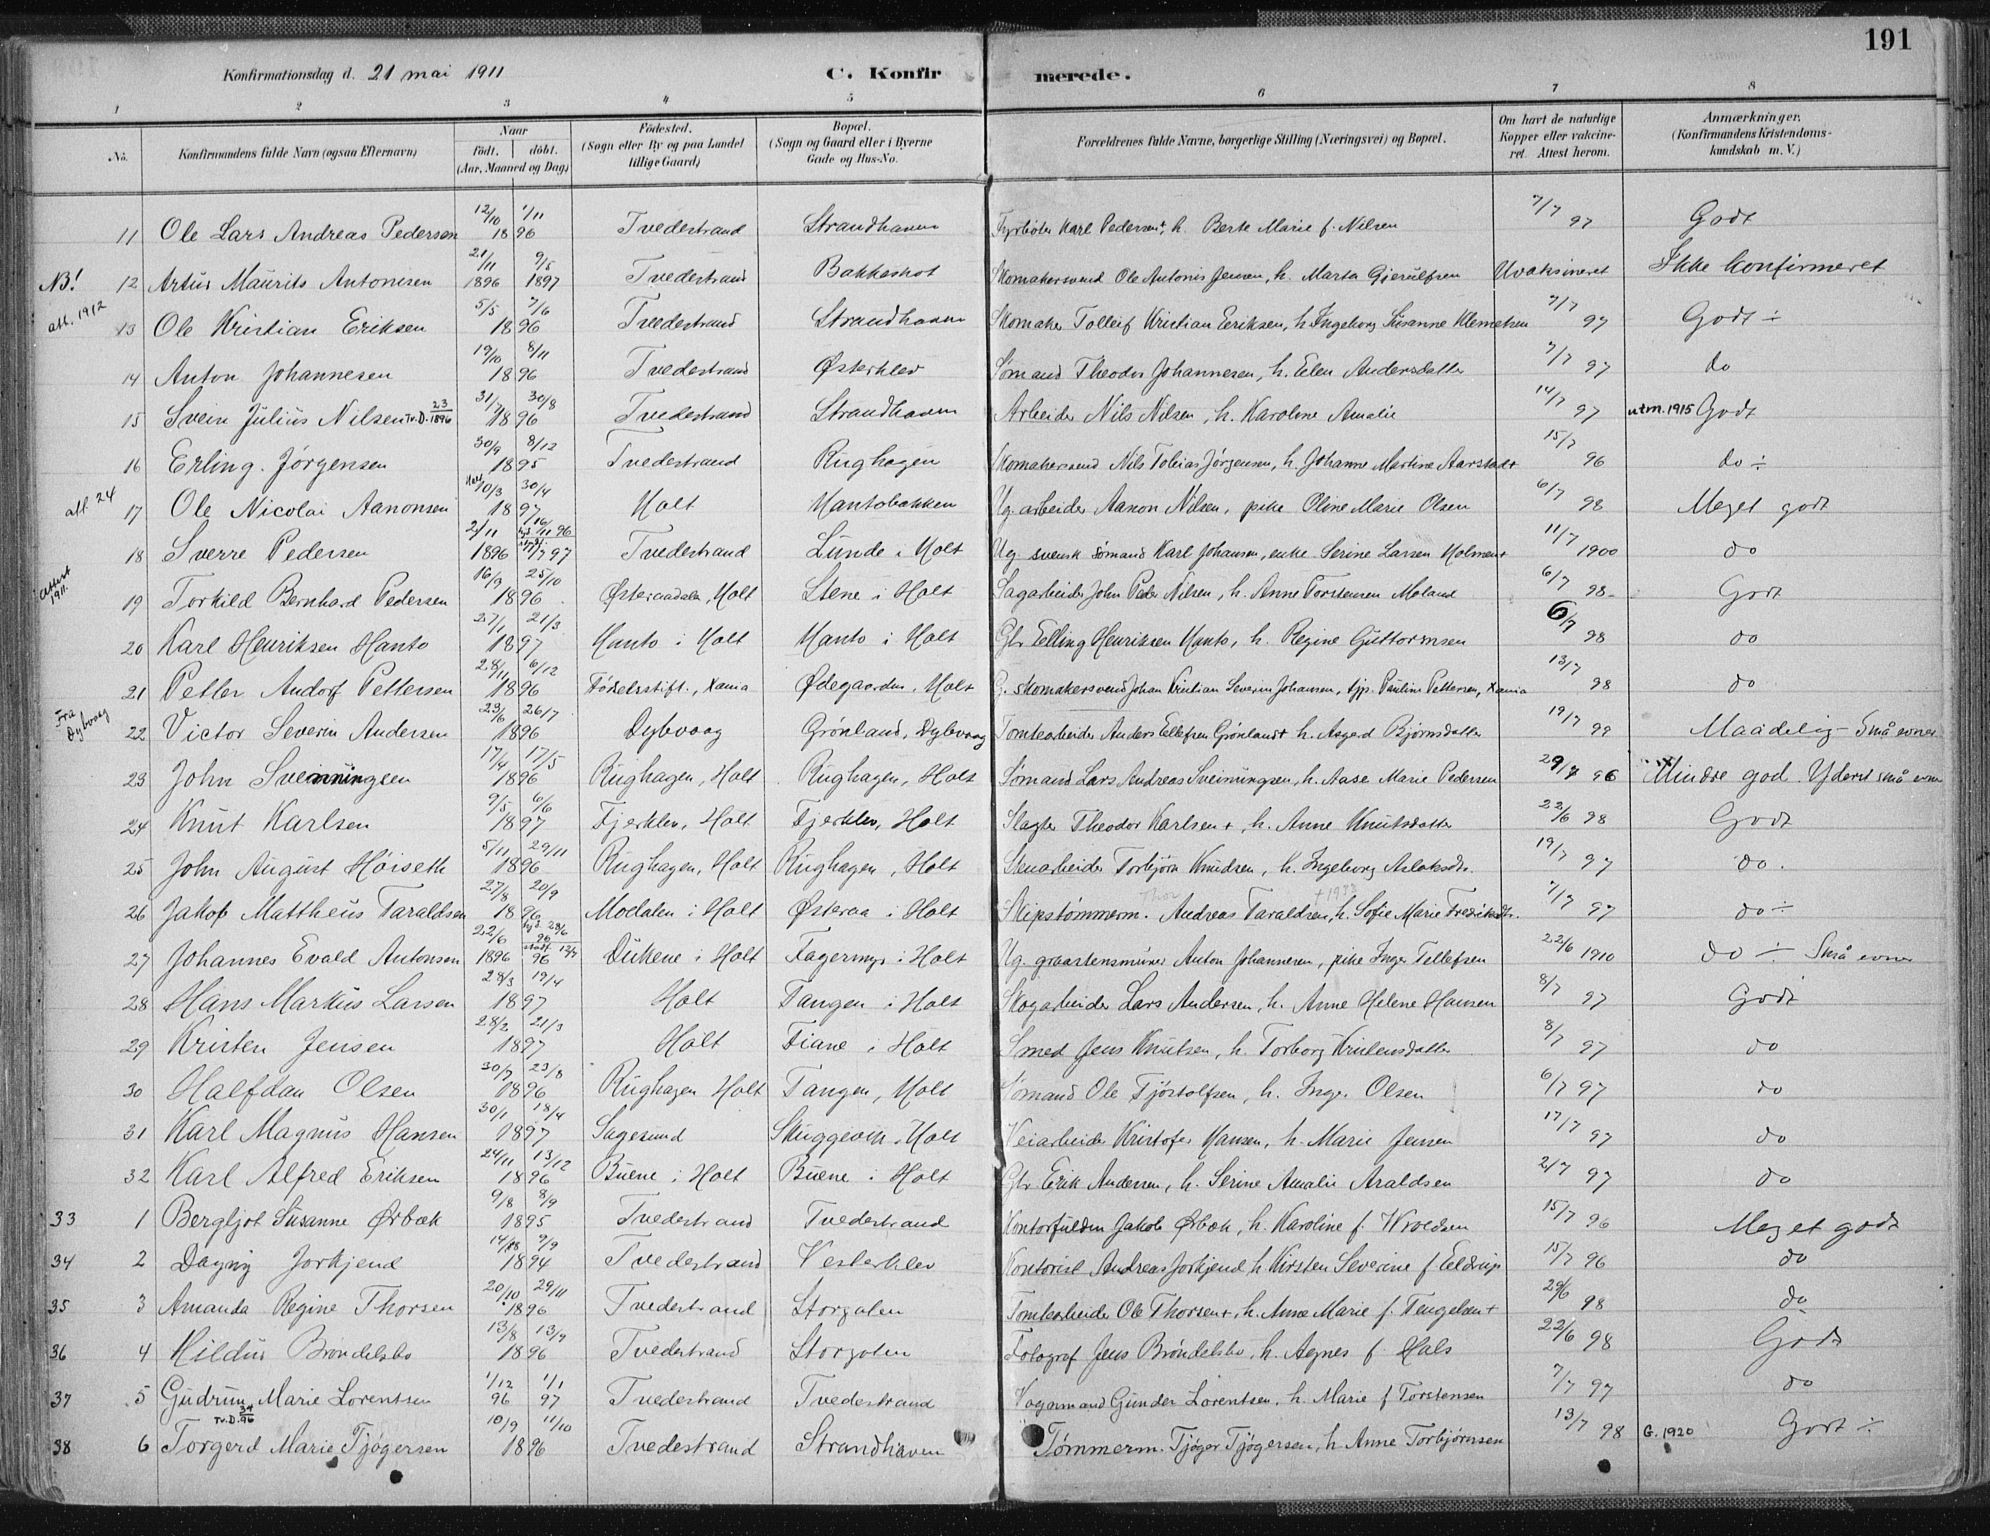 191
Konfirmationsdag d. 21 mai 1911 C. Konfirmerede.
1 2 3 4 5 6 7 8
No. Konfirmandens fulde Navn (ogsaa Efternavn) Naar født. døbt. (Aar, Maaned og Dag) Fødested. (Sogn eller By og paa Landet tillige Gaard) Bopæl. (Sogn og Gaard eller i Byerne Gade og Hus-No. Forældrenes fulde Navne, borgerlige Stilling (Næringsvei) og Bopæl. Om havt de naturlige Kopper eller vakcineret. Attest herom. Anmærkninger. (Konfirmandens Kristendomskundskab m. V.)
11 Ole Lars Andreas Pedersen 12/10 1/11 1896 Tvedestrand Strandhaven Fyrbøter Karl Pedersen+, h. Berte Marie f. Nilsen 7/7 97 Godt
NB! 12 Artur Maurits Antonisen 21/11 1896 9/5 1897 Tvedestrand Bakkeskot Skomakersvend Ole Antonis Jensen, h. Marta Gjerulfsen Uvaksineret Ikke konfirmeret
att. 1912 13 Ole Kristian Eriksen 5/5 7/6 1896 Tvedestrand Strandhaven Skomaker Tolleif Kristian Eriksen, h. Ingeborg Susanne Klemetsen 7/7 97 Godt ÷
14 Anton Johannesen 19/10 8/11 1896 Tvedestrand Østerklev Sømand Theodor Johannesen, h. Elen Andersdatter 7/7 97 do
15 Svein Julius Nilsen Tv.D. 23/1896 31/7 30/8 1896 Tvedestrand Strandhaven Arbeider Nils Nilsen, h. Karoline Amalie 14/7 97 utm. 1915 Godt
16 Erling Jørgensen 30/9 8/12 1895 Tvedestrand Rughagen Skomakersvend Nils Tobias Jørgensen, h. Johanne Martine Aarstadt 15/7 96 do ÷
att. 24 17 Ole Nicolai Aanonsen 10/3 30/4 1897 Holt Hantobakken Ug. arbeider Aanon Nilsen, pike Oline Marie Olsen 6/7 98 Meget godt
18 Sverre Pedersen 2/11 1896 97 Tvedestrand Lunde i Holt Ug. svensk sømand Karl Johansen, enke Serine Larsen Holmen+ 11/7 1900 do
attest 1911. 19 Torkild Bernhard Pedersen 16/9 25/10 1896 Østeraadalen, Holt Stene i Holt Sagarbeider John Peder Nilsen, h. Anne Torstensen Moland 6/7 98 Godt
20 Karl Henriksen Hanto 27/1 21/3 1897 Hanto i Holt Hanto i Holt Gbr Elling Henriksen Hanto, h. Regine Guttormsen 6/7 98 do
21 Petter Andorf Pettersen 28/11 6/12 1896 Fødselsstift., Xania Ødegaarden, Holt G. skomakersvend Johan Kristian Severin Johansen, tjp. Pauline Pettersen, Xania 13/7 98 do
Fra Dybvaag 22 Victor Severin Andersen 23/6 26/7 1896 Dybvaag Grønland, Dybvaag Tomtearbeider Anders Ellefsen Grønland+ h. Asgerd Bjørnsdatter 19/7 99 Maadelig - Små evner
23 John Sveinungsen 17/4 17/5 1896 Rughagen, Holt Rughagen, Holt Sømand Lars Andreas Sveinungsen, h. Aase Marie Pedersen 29/7 96 Mindre god. Yderst små evner
24 Knut Karlsen 9/5 6/6 1897 Fjerklev, Holt Fjerklev, Holt Slagter Theodor Karlsen+, h. Anne Knutsdatter 22/6 98 Godt
25 John August Høiseth 5/11 29/11 1896 Rughagen, Holt Rughagen, Holt Stenarbeider Torbjørn Knudsen, h. Ingeborg Aslaksdtr. 19/7 97 do.
26 Jakob Mattheus Taraldsen 27/8 20/9 1896 Modalen i Holt Østeraa i Holt Skipstømmerm. Thor Andreas Taraldsen, +1933 h. Sofie Marie Fredriksdtr. 7/7 97 do ÷
27 Johannes Evald Antonsen 22/6 1896 96 Dukene i Holt Fagermyr i Holt Ug. graastensmurer Anton Johannesen, pike Inger Tellefsen 22/6 1910 do ÷ Små evner
28 Hans Markus Larsen 28/3 19/4 1897 Holt Tangen i Holt Skogarbeider Lars Andersen, h. Anne Helene Hansen 8/7 97 Godt
29 Kristen Jensen 28/2 21/3 1897 Holt Fiane i Holt Smed Jens Knutsen, h. Torborg Kristensdatter 8/7 97 do
30 Halfdan Olsen 30/7 23/8 1896 Rughagen Holt Tangen, Holt Sømand Ole Tjøstolfsen, h. Inger Olsen 6/7 97 do
31 Karl Magnus Hansen 30/1 18/4 1897 Sagesund Skuggevik, Holt Veiarbeider Kristofer Hansen, h. Marie Jensen 17/7 97 do
32 Karl Alfred Eriksen 24/11 13/12 1896 Buene i Holt Buene i Holt Gbr. Erik Andersen, h. Serine Amalie Araldsen 2/7 97 do
33 1 Bergljot Susanne Ørbæk 9/8 8/9 1895 Tvedestrand Tvedestrand Kontorfuldm Jakob Ørbæk, h. Karoline f. Wroldsen 15/7 96 Meget godt
34 2 Dagny Jorkjend 14/88 9/9 1894 Tvedestrand Vesterklev Kontorist Andreas Jorkjend h. Kirsten Severine f Eeldrup 15/7 96 do
35 3 Amanda Regine Thorsen 20/10 29/11 1896 Tvedestrand Storgaten Tomtearbeider Ole Thorsen+, h. Anne Marie f. Tengelsen+ 29/6 98 do
36 4 Hildur Brøndelsbo 13/8 13/9 1896 Tvedestrand Storgaten Fotograf Jens Brøndelsbo, h. Agnes f. Hals 22/6 98 Godt
37 5 Gudrun Marie Lorentsen 1/12 96 1/1 97 Tvedestrand Tvedestrand Vognmand Gunder Lorentsen, h. Marie f Torstensen 7/7 97 do
Tv.D. 34/96
38 6 Torgerd Marie Tjøgersen 10/9 11/10 1896 Tvedestrand Strandhaven Tømmerm. Tjøger Tjøgersen, h. Anne Torbjørnsen 13/7 98 G. 1920 Godt ÷